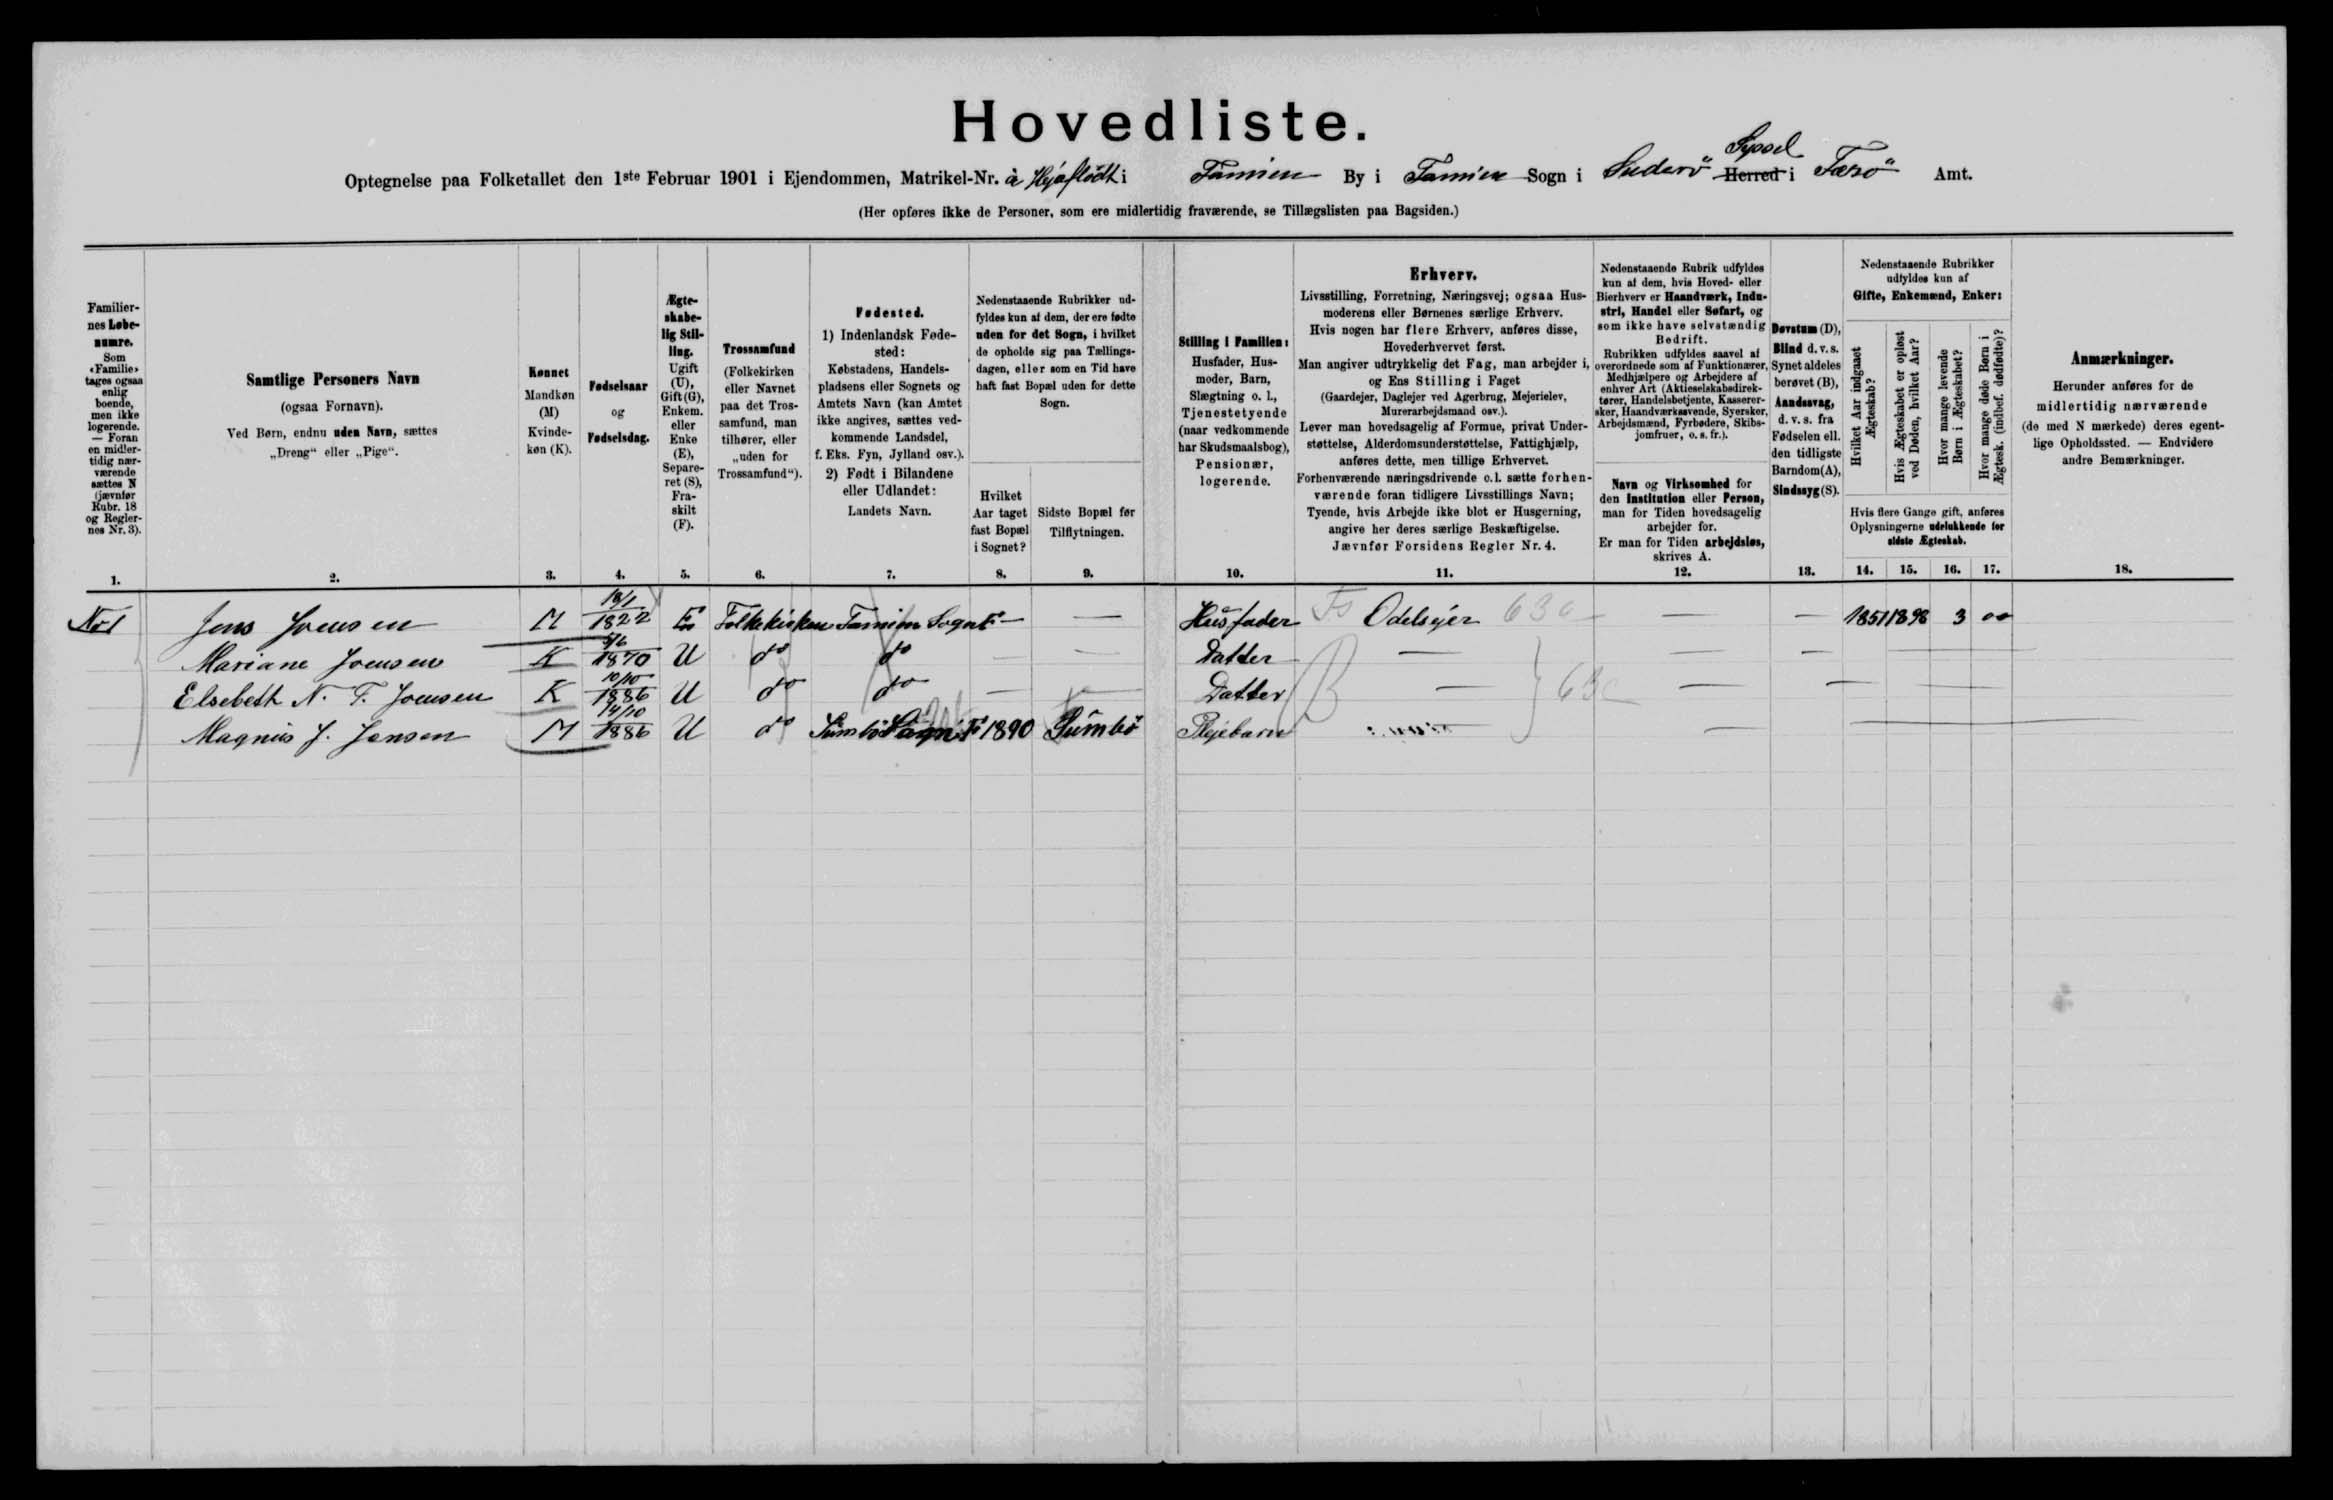 Hovedliste.
Syssel
Optegnelse paa Folketallet den 1ste Februar 1901 i Ejendommen, Matrikel-Nr. à i Famien By i Famien Sogn i Suderö Herred i Færö Amt.
(Her opføres ikke de Personer, som ere midlertidig fraværende, se Tillægslisten paa Bagsiden.)
Familier-
nes Løbe-
numre.
Som
«Familie»
tages ogsaa
enlig
boende,
men ikke
logerende.
— Foran
en midler-
tidig nær-
værende
sættes N
(jævnfør
Rubr. 18
og Regler-
nes Nr. 3).
1.
Samtlige Personers Navn
(ogsaa Fornavn).
Ved Børn, endnu uden Navn, sættes
„Dreng“ eller „Pige“.
2.
Kønnet
Mandkøn
(M)
Kvinde-
køn (K).
3.
Fødselsaar
og
Fødselsdag.
4.
Ægte-
skabe-
lig Stil-
ling.
Ugift
(U),
Gift (G),
Enkem.
eller
Enke
(E),
Separe-
ret (S),
Fra-
skilt
(F).
5.
Trossamfund
(Folkekirken
eller Navnet
paa det Tros-
samfund, man
tilhører, eller
„uden for
Trossamfund“).
6.
Fødested.
1) Indenlandsk Føde-
sted:
Købstadens, Handels-
pladsens eller Sognets og
Amtets Navn (kan Amtet
ikke angives, sættes ved-
kommende Landsdel,
f. Eks. Fyn, Jylland osv.).
2) Født i Bilandene
eller Udlandet:
Landets Navn.
7.
Nedenstaaende Rubrikker ud-
fyldes kun af dem, der ere fødte
uden for det Sogn, i hvilket
de opholde sig paa Tællings-
dagen, eller som en Tid have
haft fast Bopæl uden for dette
Sogn.
Hvilket
Aar taget
fast Bopæl
i Sognet?
8.
Sidste Bopæl før
Tilflytningen.
9.
Stilling i Familien:
Husfader, Hus-
moder, Barn,
Slægtning o. l.,
Tjenestetyende
(naar vedkommende
har Skudsmaalsbog),
Pensionær,
logerende.
10.
Erhverv.
Livsstilling, Forretning, Næringsvej; ogsaa Hus-
moderens eller Børnenes særlige Erhverv.
Hvis nogen har flere Erhverv, anføres disse,
Hovederhvervet først.
Man angiver udtrykkelig det Fag, man arbejder i,
og Ens Stilling i Faget
(Gaardejer, Daglejer ved Agerbrug, Mejerielev,
Murerarbejdsmand osv.).
Lever man hovedsagelig af Formue, privat Under-
støttelse, Alderdomsunderstøttelse, Fattighjælp,
anføres dette, men tillige Erhvervet.
Forhenværende næringsdrivende o.l. sætte forhen-
værende foran tidligere Livsstillings Navn;
Tyende, hvis Arbejde ikke blot er Husgerning,
angive her deres særlige Beskæftigelse.
Jævnfør Forsidens Regler Nr. 4.
11.
Nedenstaaende Rubrik udfyldes
kun af dem, hvis Hoved- eller
Bierhverv er Haandværk, Indu-
stri, Handel eller Søfart, og
som ikke have selvstændig
Bedrift.
Rubrikken udfyldes saavel af
overordnede som af Funktionærer,
Medhjælpere og Arbejdere af
enhver Art (Aktieselskabsdirek-
tører, Handelsbetjente, Kasserer-
sker, Haandværkssvende, Syersker,
Arbejdsmænd, Fyrbødere, Skibs-
jomfruer, o. s. fr.).
Navn og Virksomhed for
den Institution eller Person,
man for Tiden hovedsagelig
arbejder for.
Er man for Tiden arbejdsløs,
skrives A.
12.
Døvstum (D),
Blind d. v. s.
Synet aldeles
berøvet (B),
Aandssvag,
d. v. s. fra
Fødselen ell.
den tidligste
Barndom(A),
Sindssyg (S).
13.
Nedenstaaende Rubrikker
udfyldes kun af
Gifte, Enkemænd, Enker:
Hvilket Aar indgaaet
Ægteskab?
Hvis Ægteskabet er opløst
ved Døden, hvilket Aar?
Hvor mange levende
Børn i Ægteskabet?
Hvor mange døde Børn i
Ægtesk. (indbef. dødfødte)?
Hvis flere Gange gift, anføres
Oplysningerne udelukkende for
sidste Ægteskab.
14. 15. 16. 17.
Anmærkninger.
Herunder anføres for de
midlertidig nærværende
(de med N mærkede) deres egent-
lige Opholdssted. — Endvidere
andre Bemærkninger.
18.
No 1 Jens Joensen M 1822 E Folkekirken Famien Sogn F — — Husfader Fs Odelsejer 63a — — 1851 1898 3 00
Mariane Joensen K 5/6 1870 U do do — — Datter — — —
Elsebeth N. F. Joensen K 10/10 1886 U do do — — Datter B — } 63c — —
Magnus J. Jensen M 14/10 1886 U do Sumbö Sogn F 1890 Sumbö Plejebarn —